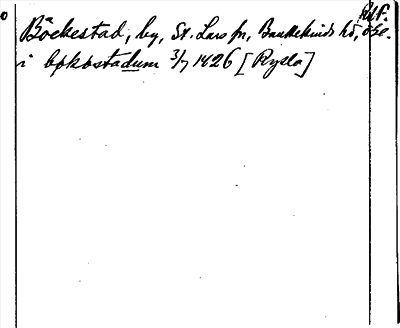 RAP.
Böckestad, by, St. Lars sn, Bankekinds hd, Ög.
i bokostadum 3/7 1426 [Rysla]